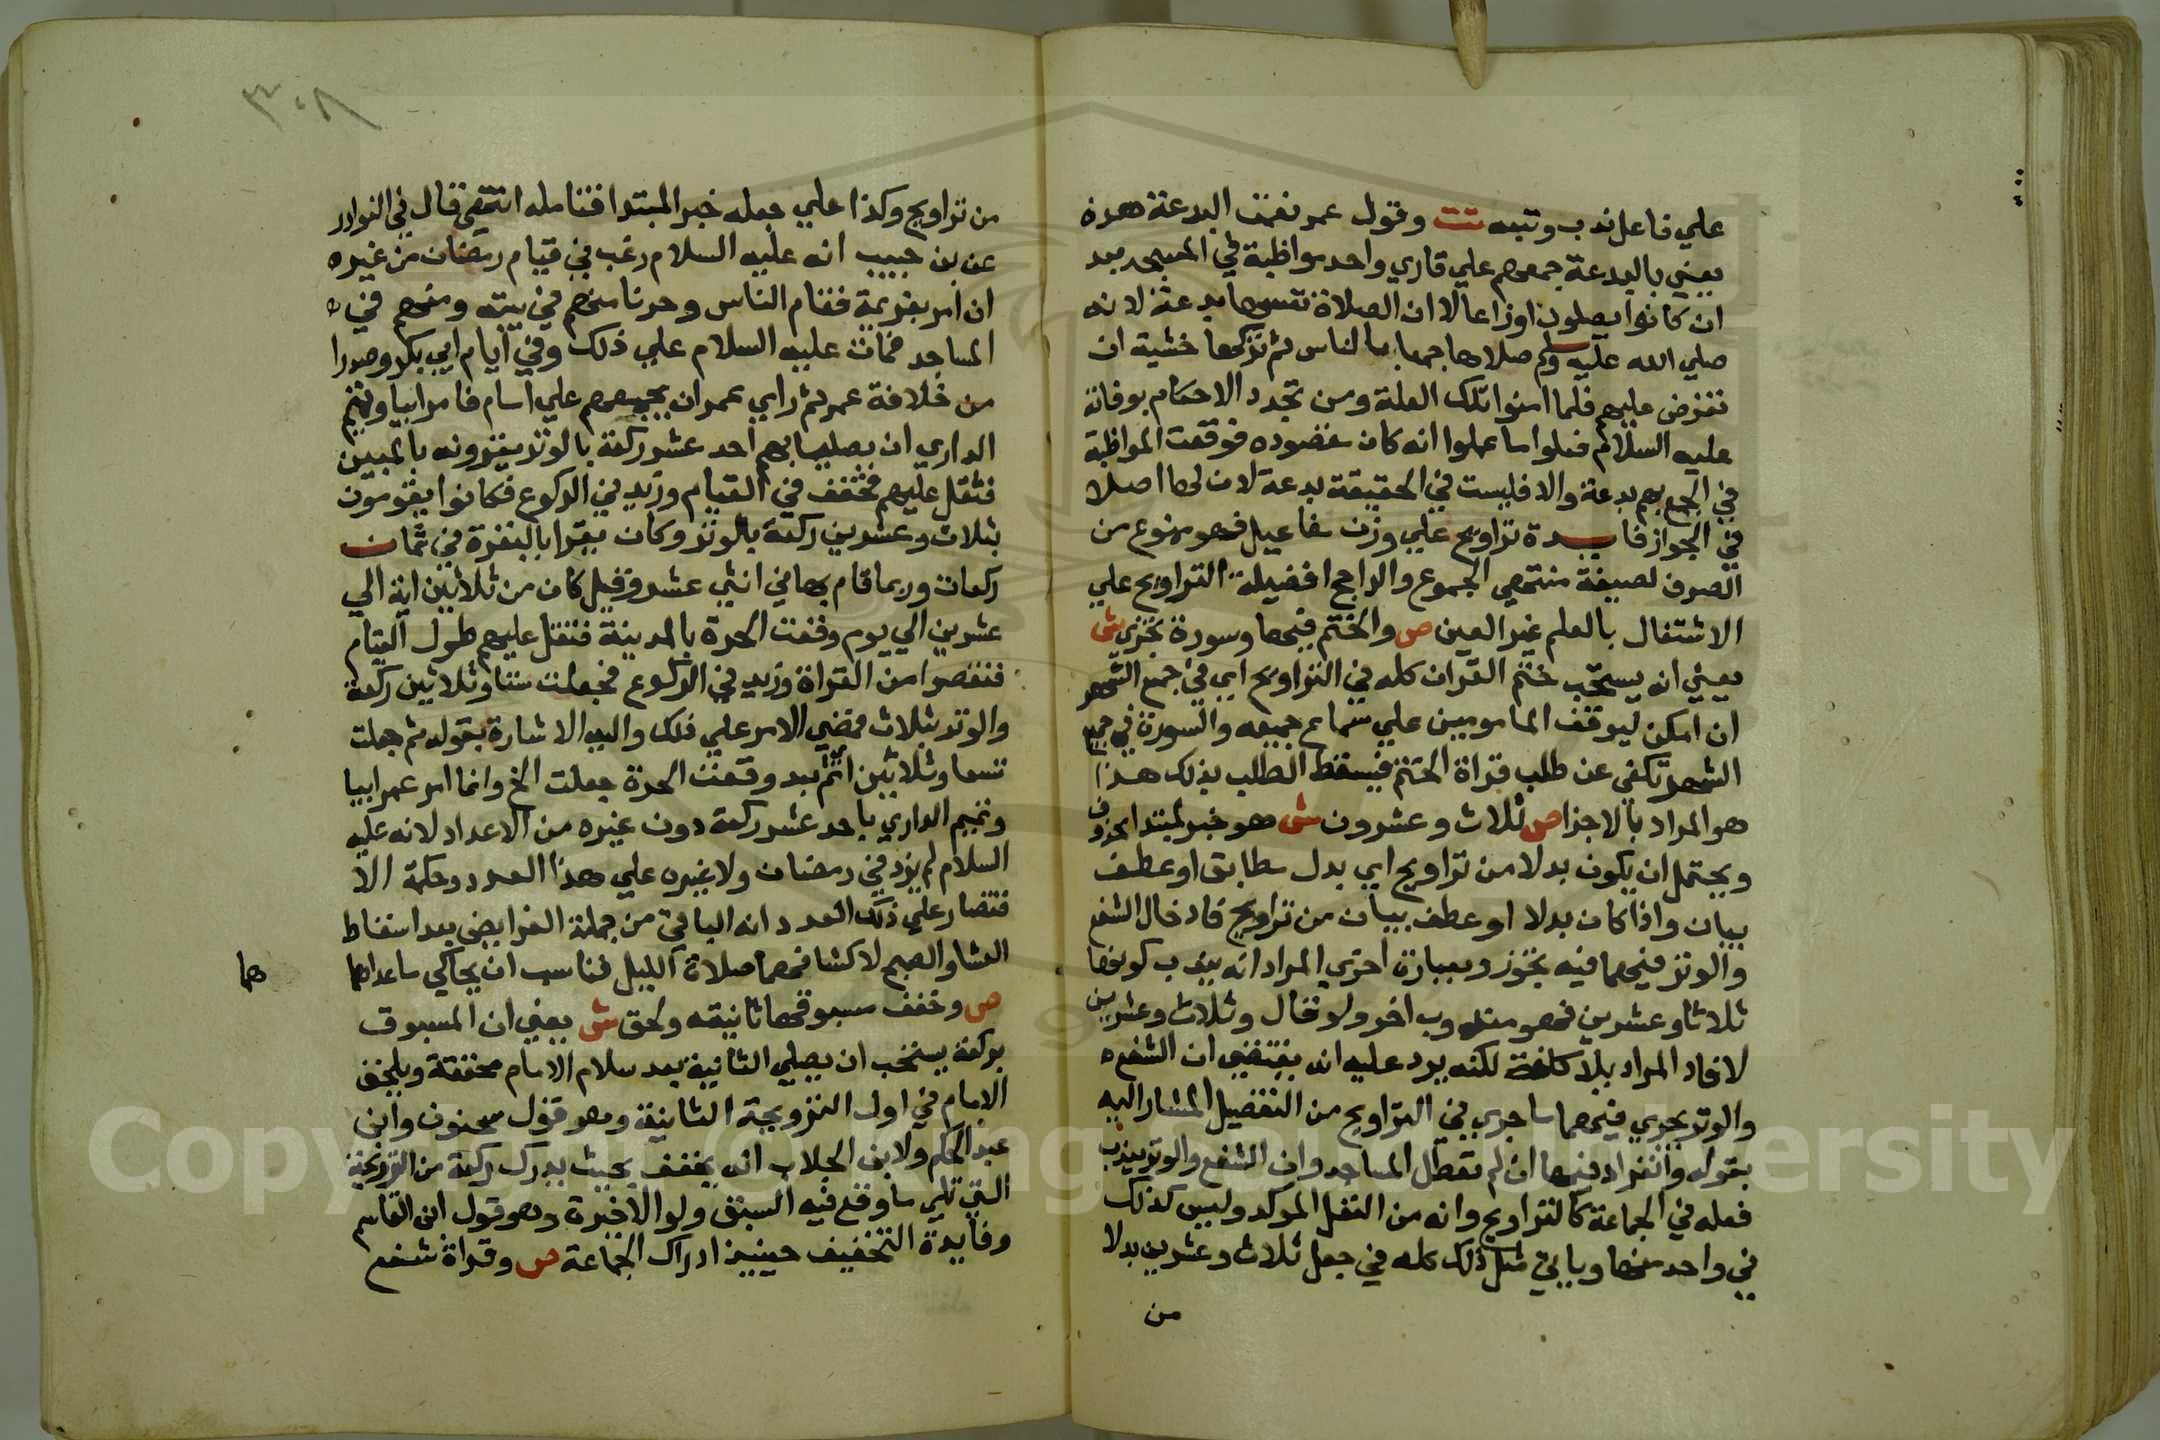 علي فاعل ندب وتبعه تت وقول عمر نعمت البدعة هذه
يعني بالبدعة جمعهم علي قاري واحد مواظبة في المسجد بعد
ان كانوا يصلون اوزاعا لا ان الصلاة نفسها بدعة لانه
صلي الله عليه وسلم صلاها جمعا بالناس ثم تركها خشية ان
تفرض عليهم فلما امنوا تلك العلة ومن تجدد الاحكام بوفاته
عليه السلام فعلوا ما علموا انه كان مقصوده فوقعت المواظبة
في الجمع بهم بدعة والا فليست في الحقيقة بدعة لان لها اصلا
في الجواز فايدة تراويح علي وزن مفاعيل فهو ممنوع من
الصرف لصيغة منتهي الجموع والراجح افضيلة التراويح علي
الاشتغال بالعلم غير العين ص والختم فيها وسورة تجزي ش
يعني انه يستحب ختم القران كله في التراويح اي في جميع الشهر
ان امكن ليوقف المامومين علي سماع جميعه والسورة في جميع
الشهر تكفي عن طلب قراة الختم فيسقط الطلب بذلك هذا
هو المراد بالاجزا ص ثلاث وعشرون ش هو خبر لمبتدا محذوف
ويحتمل ان يكون بدلا من تراويح اي بدل مطابق او عطف
بيان واذا كان بدلا او عطف بيان من تراويح فادخال الشفع
والوتر فيها فيه تجوز وبعبارة اخري المراد انه يندب كونها
ثلاثا وعشرين فهو مندوب اخر ولو قال وثلاث وعشرين
لافاد المراد بلا كلفة لكنه يرد عليه انه يقتضي ان الشفع
والوتر يجري فيهما ما جري في التراويح من التفصيل المشار اليه
بقوله وانفراد فيها ان لم تعطل المساجد وان الشفع والوتر يندب
فعله في الجماعة كالتراويح وانه من النفل الموكد وليس كذلك
في واحد منها وياتي مثل ذلك كله في جعل ثلاث وعشرين بدلا
من
٣٠٨
من تراويح وكذا علي جعله خبر المبتدا فتامله انتهي قال في النوادر
عن بن حبيب انه عليه السلام رغب في قيام رمضان من غير
ان امر بعزيمة فقام الناس وحدنا منهم في بيته ومنهم في
المساجد فمات عليه السلام علي ذلك وفي ايام ابي بكر وصدرا
من خلافة عمر ثم راي عمر ان يجمعهم علي امام فامر ابيا وتميم
الداري ان يصليا بهم احد عشر ركعة بالوتر يقرونه بالمبين
فثقل عليهم فخفف في القيام وزيد في الركوع فكانوا يقومون
بثلاث وعشرين ركعة بالوتر وكان يقرا بالبقرة في ثمان
ركعات وربما قام بها في اثني عشر وقيل كان من ثلاثين اية الي
عشرين الي يوم وقعت الحرة بالمدينة فثقل عليهم طول القيام
فنقصوا من القراة وزيد في الركوع فجعلت ستا وثلاثين ركعة
والوتر بثلاث فمضي الامر علي ذلك واليه الاشارة بقوله ثم جعلت
تسعا وثلاثين اي ثم بعد وقعت الحرة جعلت الخ وانما امر عمر ابيا
وتميم الداري باحد عشر ركعة دون غيره من الاعداد لانه عليه
السلام لم يزد في رمضان ولا غيره علي هذا العدد وحكمة الا
قتصار علي ذلك العدد انه الباقي من جملة الفرايض بعد اسقاط
العشا والصبح لاكتنافهما صلاة الليل فناسب ان يحاكي ما عداها
ها
ص وخفف مسبوقها ثانيته ولحق ش يعني ان المسبوق
بركعة يستحب ان يصلي الثانية بعد سلام الامام مخففة ويلحق
الامام في اول الترويحة الثانية وهو قول سحنون وابن
عبد الحكم ولابن الجلاب انه يخفف بحيث يدرك ركعة من الترويحة
التي تلي ما وقع فيه السبق ولو الاخيرة وهو قول ابن القاسم
وفايدة التخفيف حينيذ ادراك الجماعة ص وقراة شفع